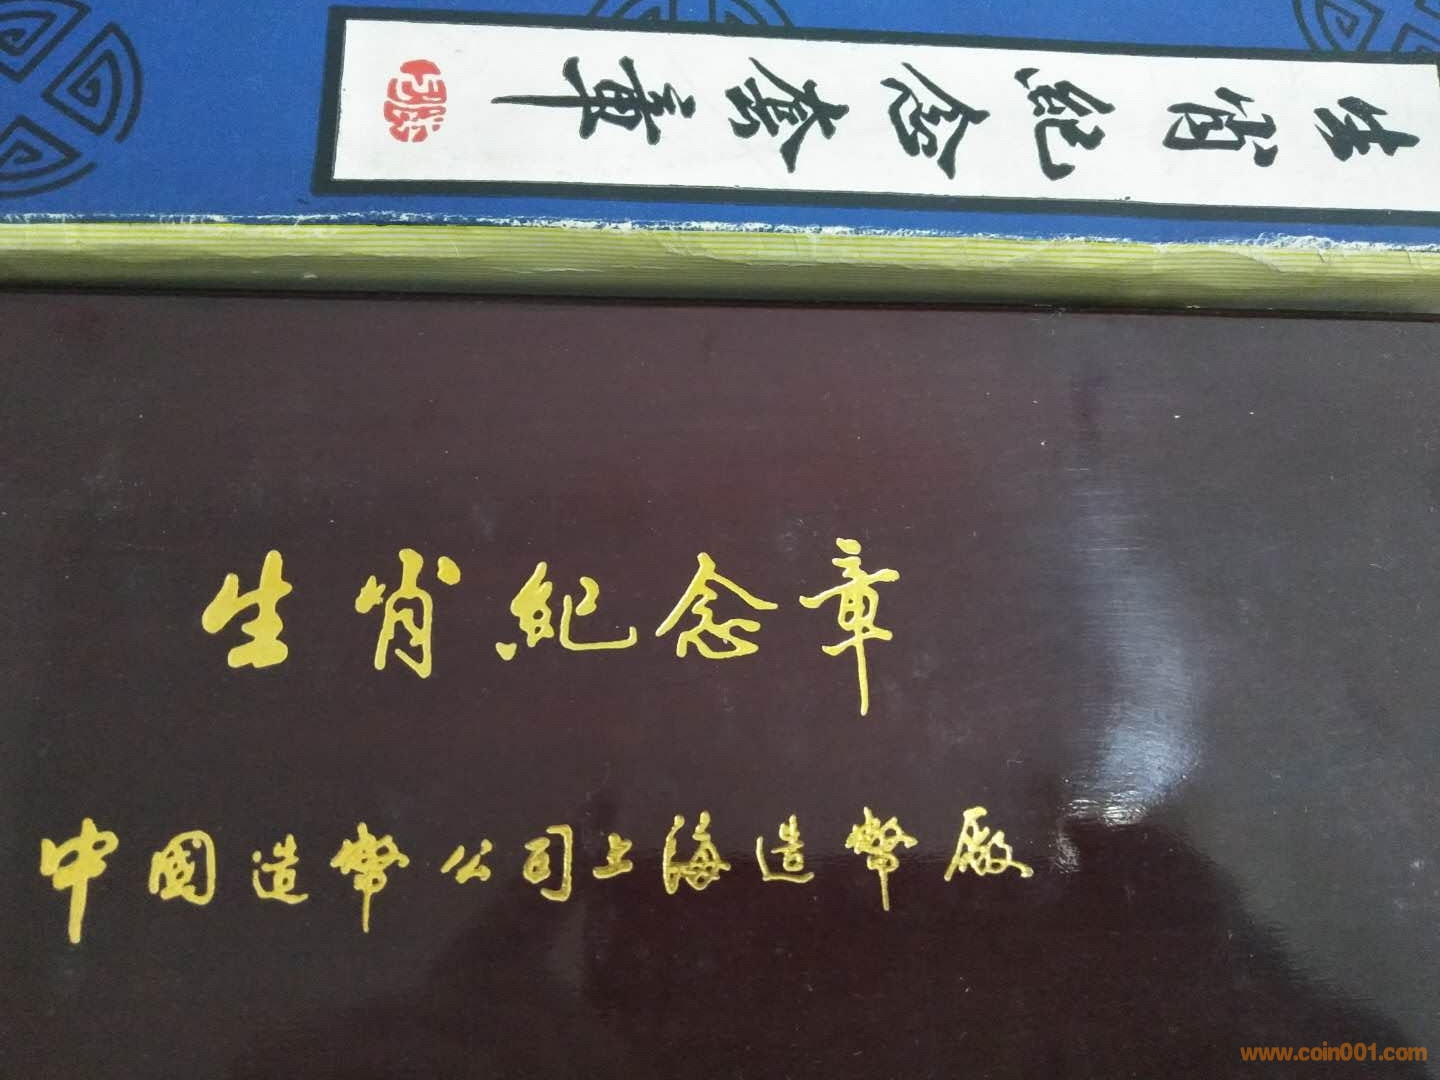 生肖紀念套章
生肖紀念章
中國造幣公司上海造幣廠
www.coin001.com